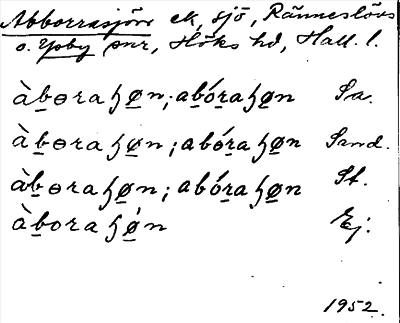 Abborrasjön ek, sjö, Ränneslövs
o. Ysby snr, Höks hd, Hall. l.
àbɵraɧøn; abóraɧøn Sa.
àbɵraɧøn; abóraɧøn Sand.
àbɵraɧøn; abóraɧøn St.
àboraɧøn Ej.
1952.